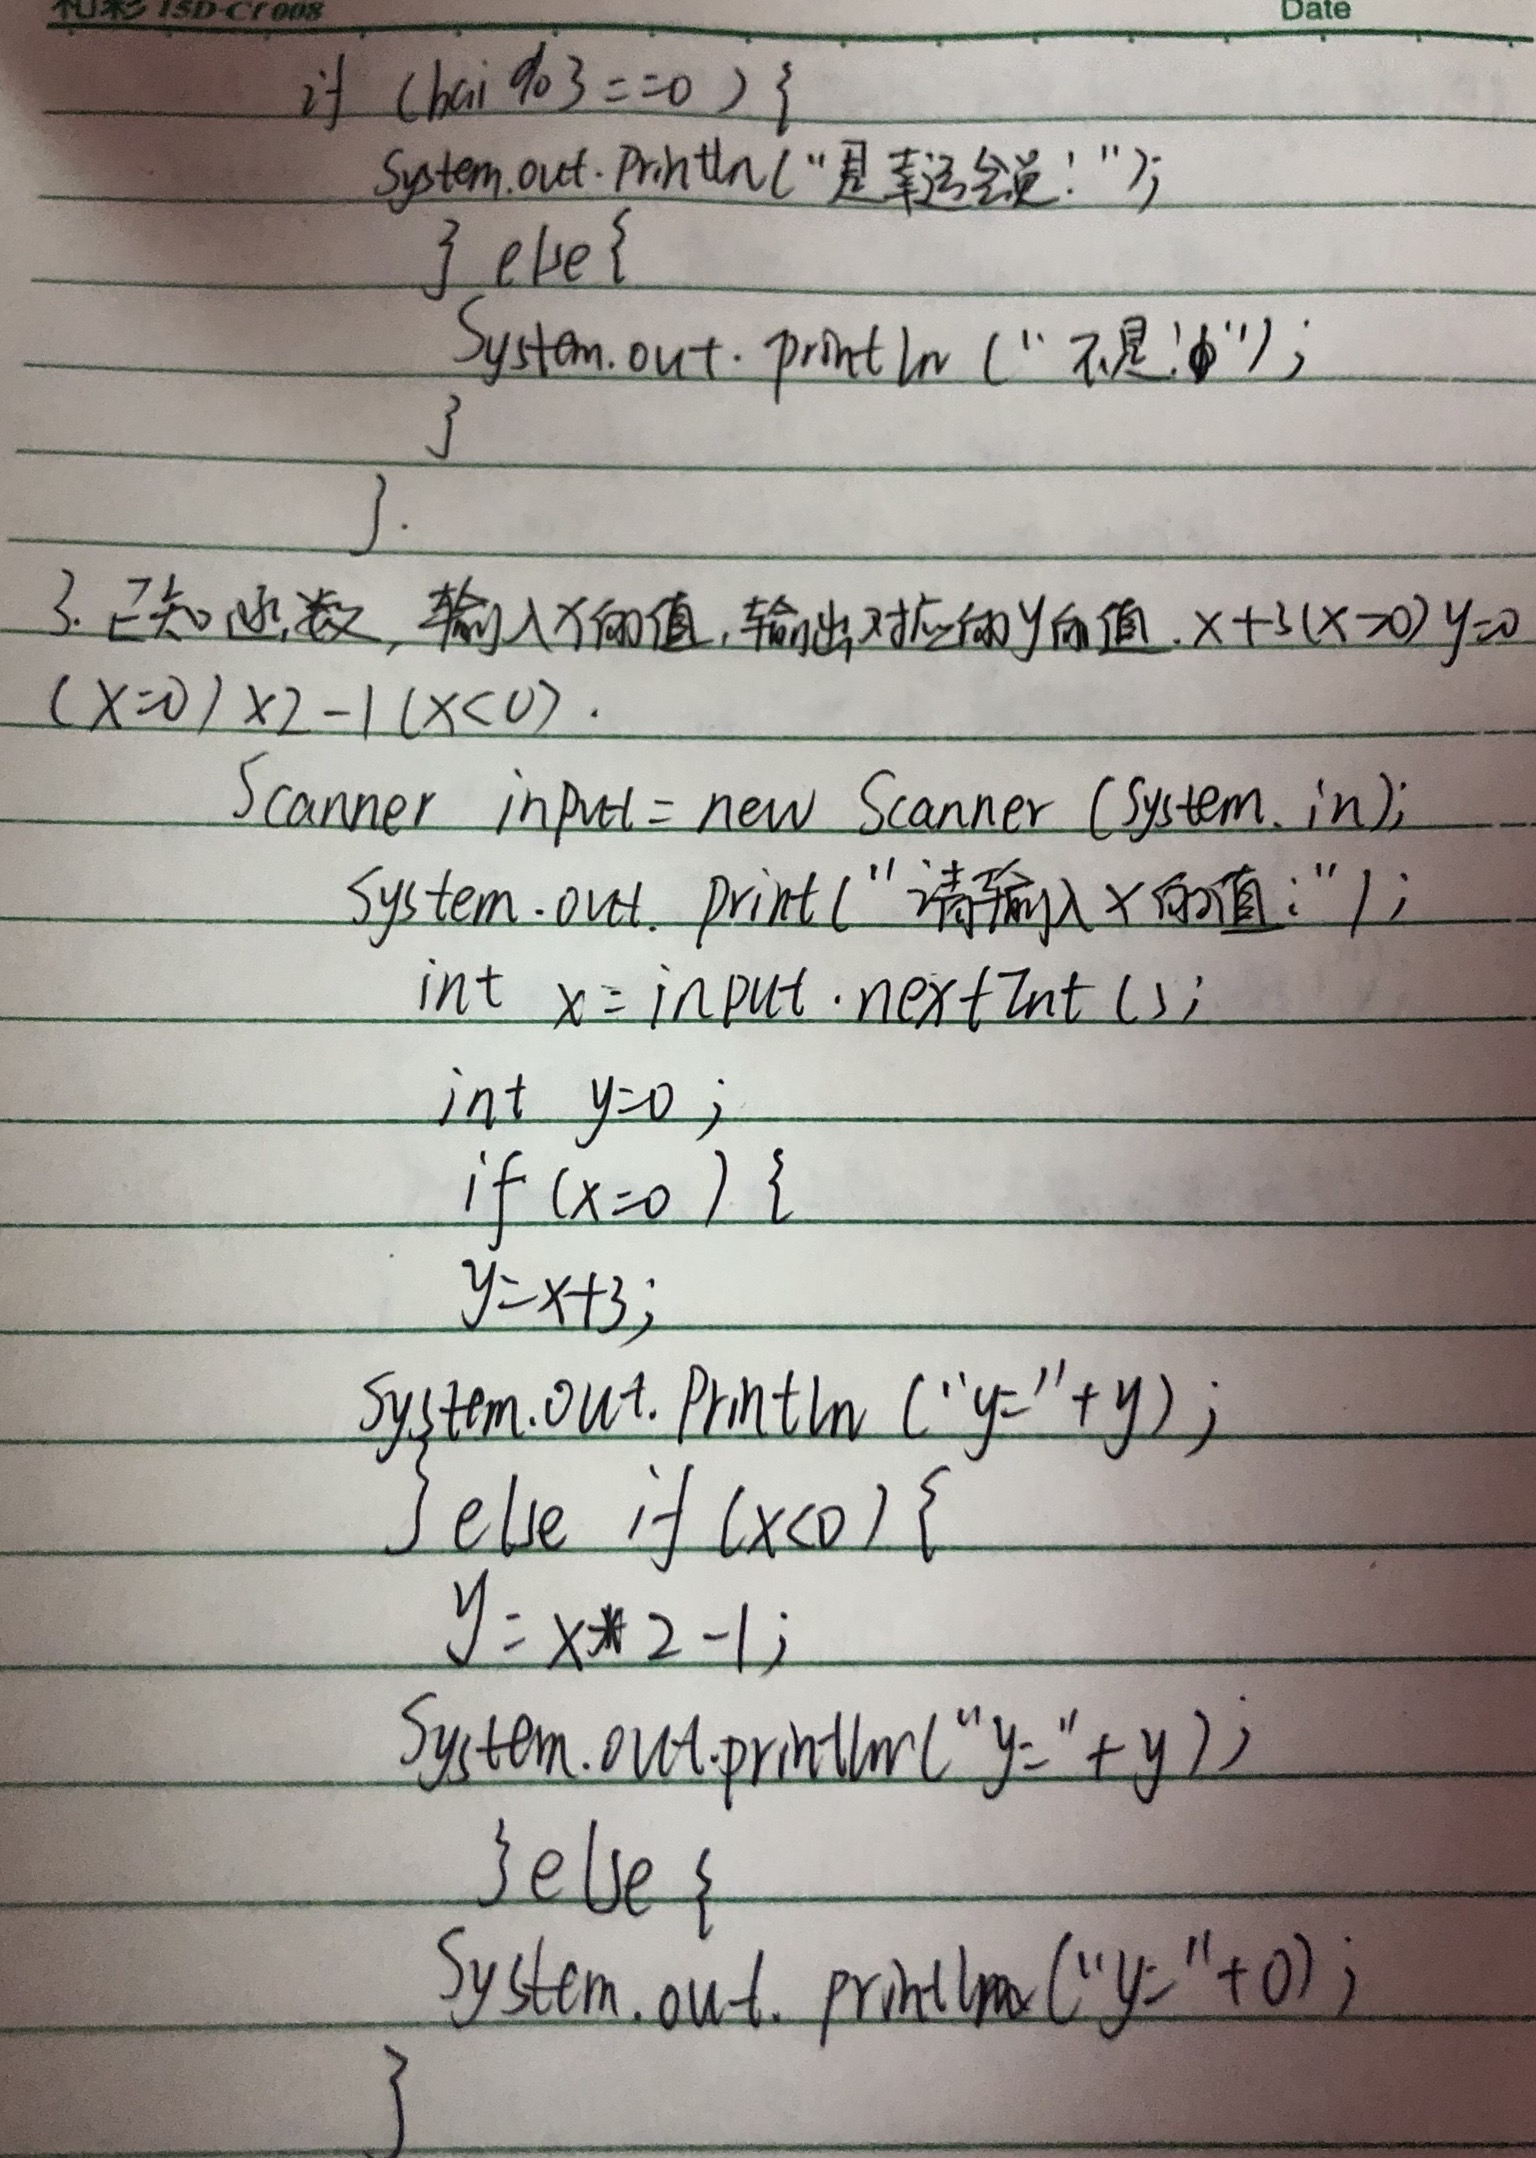 ISD-CY008 Date
if (bai%3==0){
System.out.Println("是幸运会员!");
} else{
System.out.println("不是!");
}
}.
3. 已知函数,输入X的值,输出对应的y的值.x+3(x>0)y=0
(x=0)x2-1(x<0).
Scanner input=new Scanner(System.in);
System.out.print("请输入x的值:");
int x=input.nextInt();
int y=0;
if(x=0){
y=x+3;
System.out.Println("y="+y);
}else if(x<0){
y=x*2-1;
System.out.println("y="+y);
}else{
System.out.println("y="+0);
}